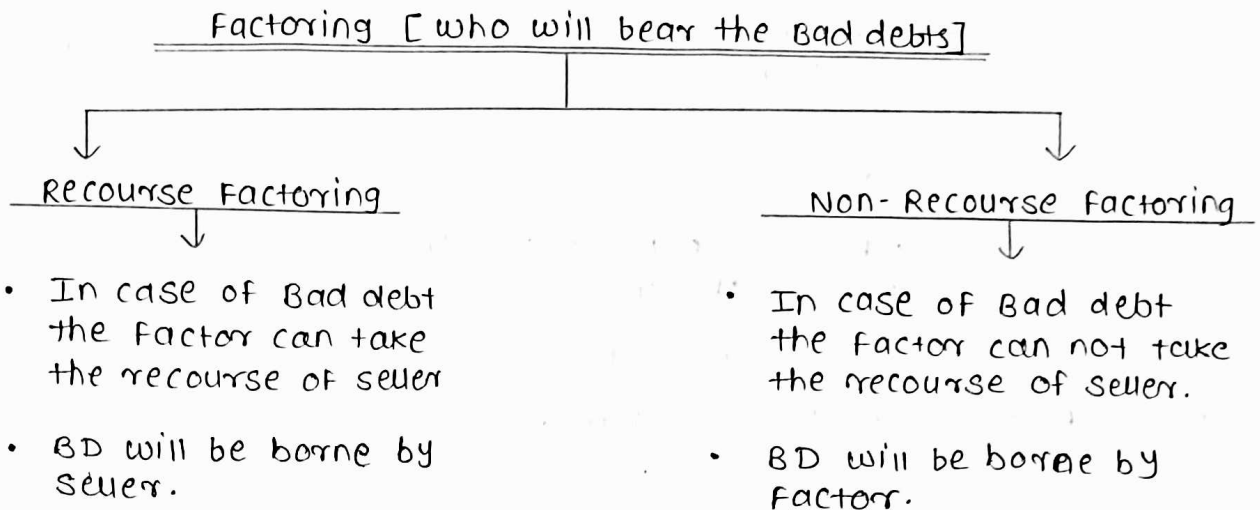 Factoring [who will bear the Bad debts]
Recourse Factoring
• In case of Bad debt
the Factor can take
the recourse of seller
• BD will be borne by
seller.
Non-Recourse Factoring
• In case of Bad debt
the Factor can not take
the recourse of seller.
• BD will be borne by
Factor.